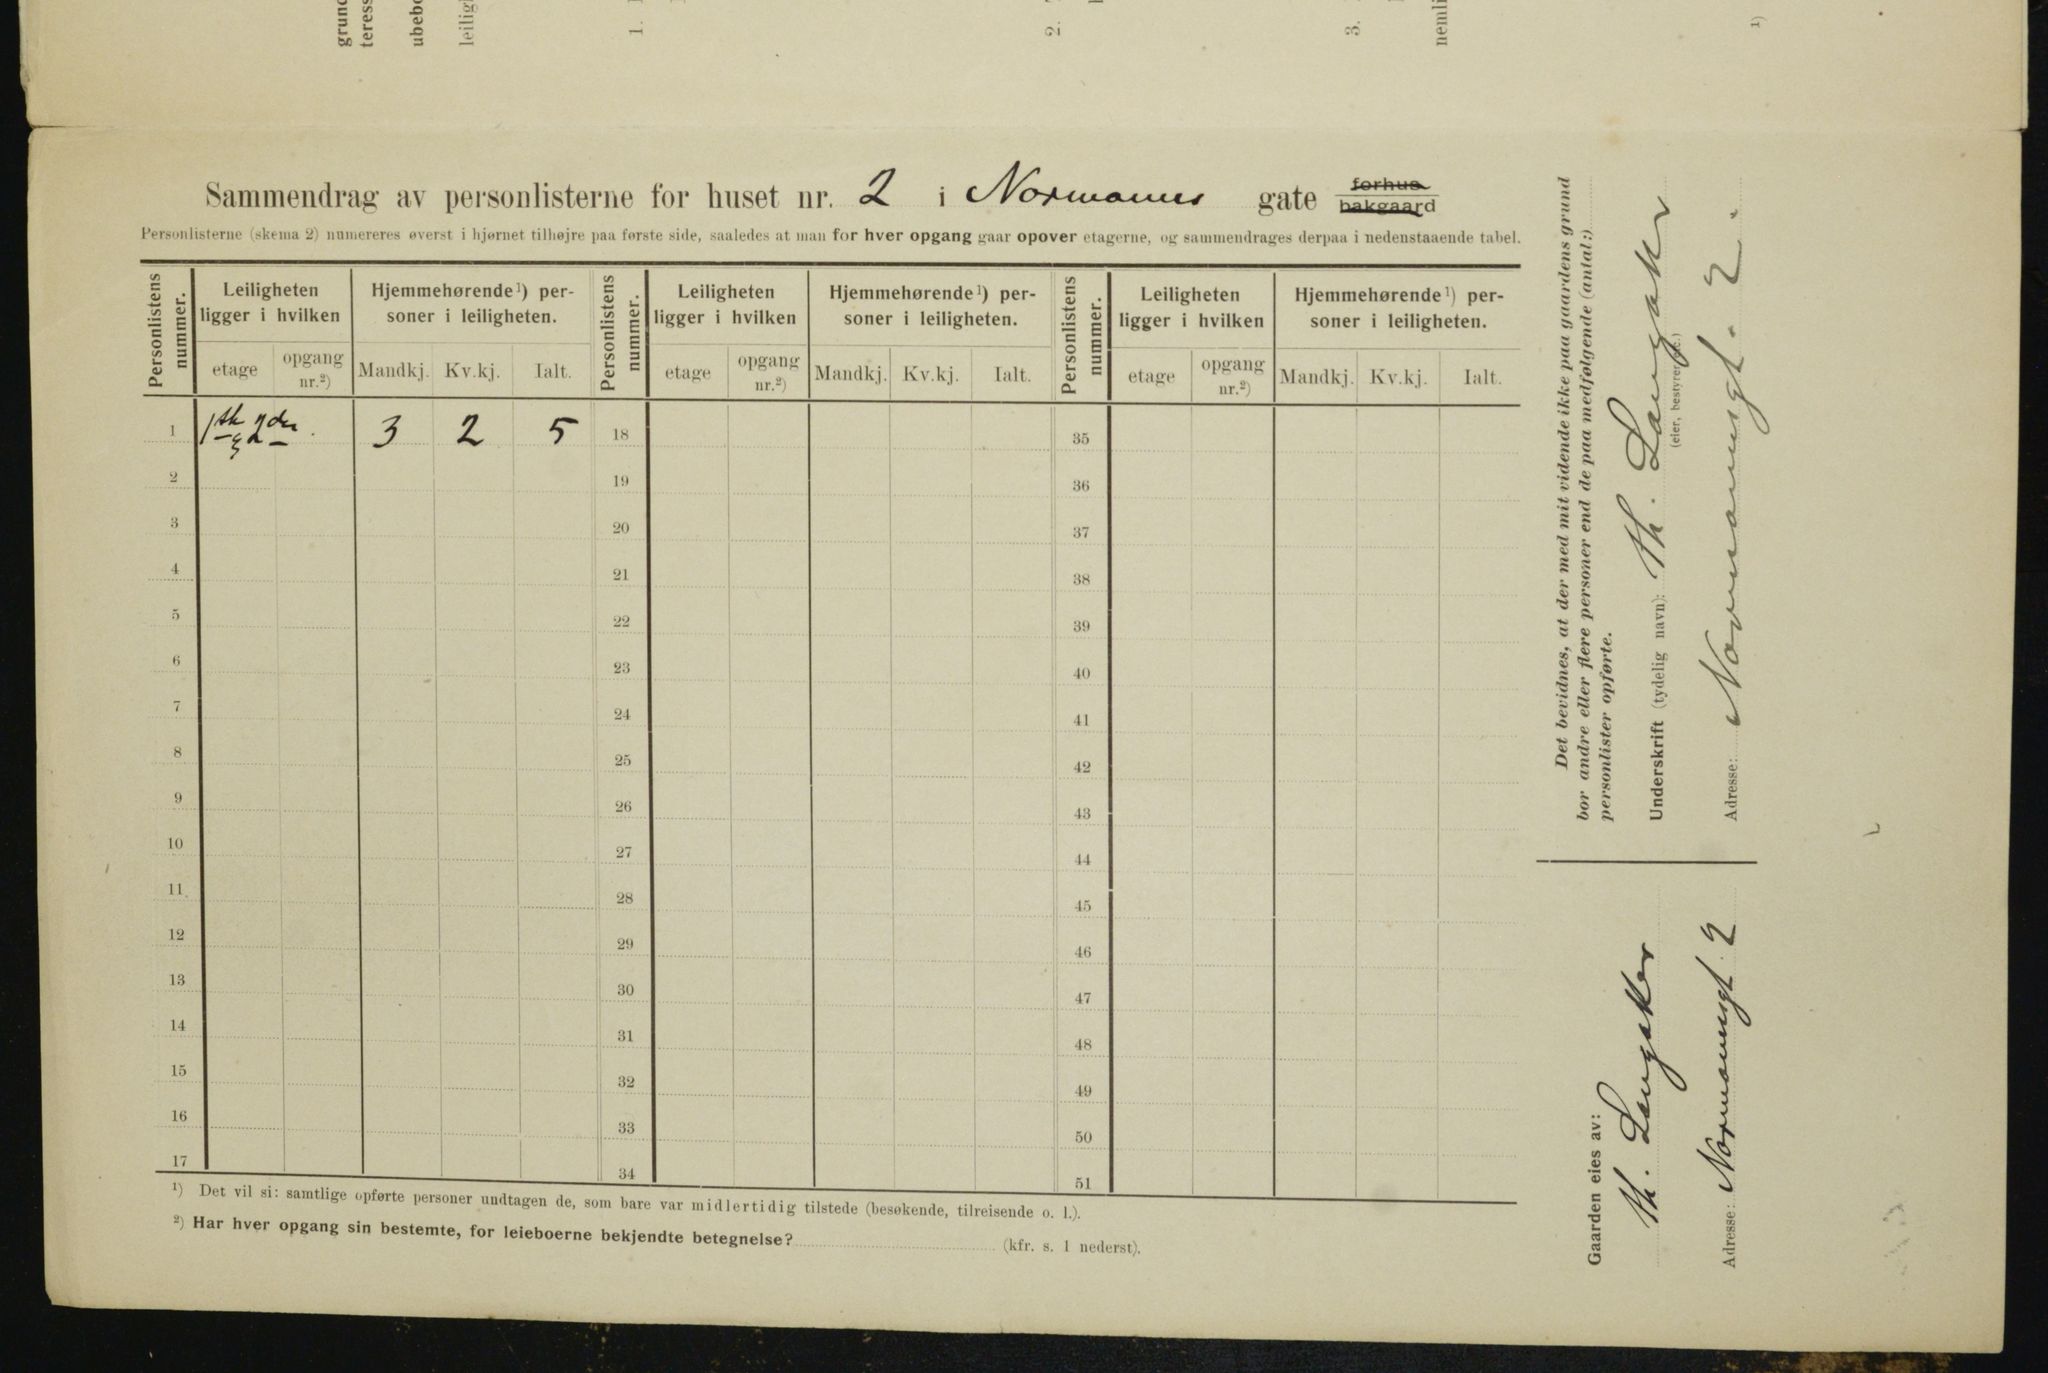 grund
teress
ubebo
leiligh
1.
2.
3.
nemli
1)
Sammendrag av personlisterne for huset nr. 2 i Normanns gate forhus bakgaard
Personlisterne (skema 2) numereres øverst i hjørnet tilhøjre paa første side, saaledes at man for hver opgang gaar opover etagerne, og sammendrages derpaa i nedenstaaende tabel.
Personlistens nummer. Leiligheten ligger i hvilken Hjemmehørende 1) personer i leiligheten. Personlistens nummer. Leiligheten ligger i hvilken Hjemmehørende 1) personer i leiligheten. Personlistens nummer. Leiligheten ligger i hvilken Hjemmehørende 1) personer i leiligheten.
etage opgang nr.2) Mandkj. Kv.kj. Ialt. etage opgang nr.2) Mandkj. Kv.kj. Ialt. etage opgang nr.2) Mandkj. Kv.kj. Ialt.
1 1ste 2den 3 2 5 18 35
2 19 36
3 20 37
4 21 38
5 22 39
6 23 40
7 24 41
8 25 42
9 26 43
10 27 44
11 28 45
12 29 46
13 30 47
14 31 48
15 32 49
16 33 50
17 34 51
1) Det vil si: samtlige opførte personer undtagen de, som bare var midlertidig tilstede (besøkende, tilreisende o. l.).
2) Har hver opgang sin bestemte, for leieboerne bekjendte betegnelse? (kfr. s. 1 nederst).
Det bevidnes, at der med mit vidende ikke paa gaardens grund
bor andre eller flere personer end de paa medfølgende (antal:)
personlister opførte.
Underskrift (tydelig navn): Th. Langaker
(eier, bestyrer etc.)
Adresse: Normannsgt. 2.
Gaarden eies av:
Th. Langaker
Adresse: Normannsgt. 2